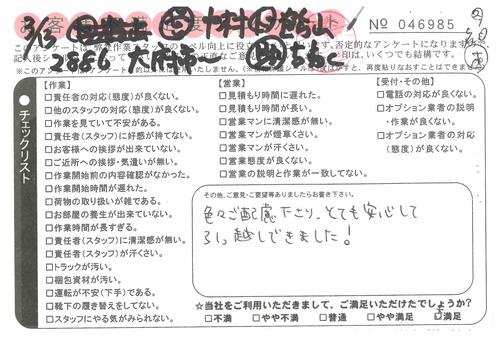 No 046985
3/13
2886
【作業】
□責任者の対応(態度)が良くない。
□他のスタッフの対応(態度)が良くない。
□作業を見ていて不安がある。
□責任者(スタッフ)に好感が持てない。
□お客様への挨拶が出来ていない。
□ご近所への挨拶・気遣いが無い。
□作業開始前の内容確認がなかった。
□作業開始時間が遅れた。
□荷物の取り扱いが雑である。
□お部屋の養生が出来ていない。
□作業時間が長すぎる。
□責任者(スタッフ)に清潔感が無い。
□責任者(スタッフ)が汗くさい。
□トラックが汚い。
□梱包資材が汚い。
□運転が不安(下手)である。
□靴下の履き替えをしてない。
□スタッフにやる気がみられない。
【営業】
□見積もり時間に遅れた。
□見積もり時間が長い。
□営業マンに清潔感が無い。
□営業マンが煙草くさい。
□営業マンが汗くさい。
□営業態度が良くない。
□営業の説明と作業が一致してない。
【受付・その他】
□電話の対応が良くない。
□オプション業者の説明
・作業が良くない。
□オプション業者の対応
(態度)が良くない。
チェックリスト
その他、ご意見・ご要望等ありましたらお書き下さい。
色々ご配慮下さり、とても安心して
引っ越しできました!
☆当社をご利用いただきまして、ご満足いただけたでしょうか?
□不満 □やや不満 □普通 □やや満足 □満足